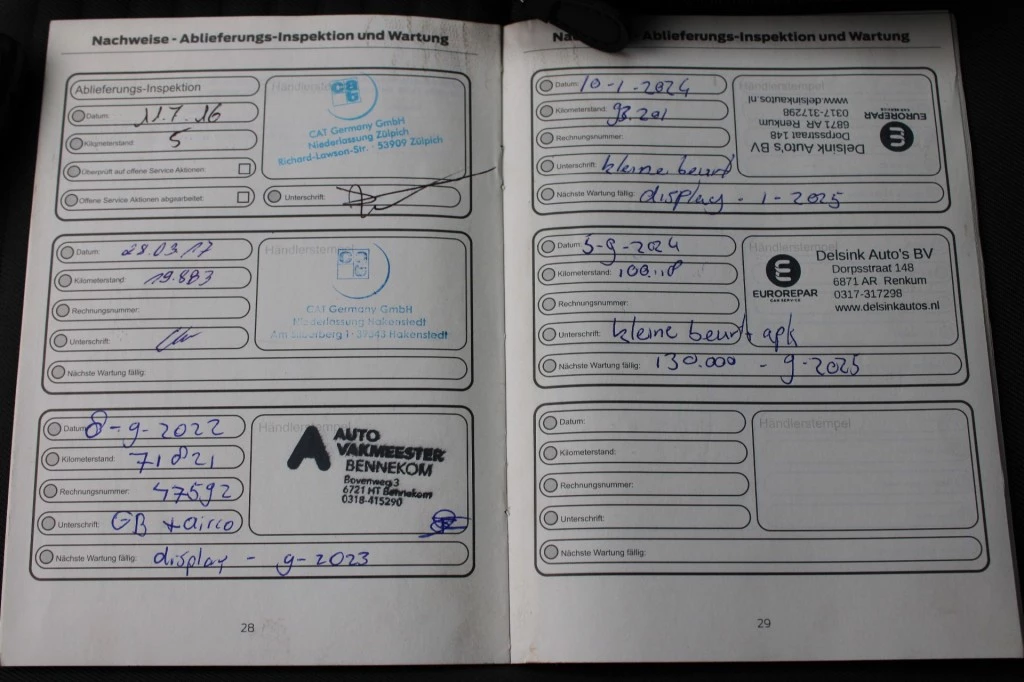 Nachweise - Ablieferungs-Inspektion und Wartung
Ablieferungs-Inspektion
Datum: 11.7.16
Kilometerstand: 5
Überprüft auf offene Service Aktionen:
Offene Service Aktionen abgearbeitet:
Händlerstempel
cat
CAT Germany GmbH
Niederlassung Zülpich
Richard-Lawson-Str. · 53909 Zülpich
Unterschrift:
Datum: 28.03.17
Kilometerstand: 19.883
Rechnungsnummer:
Unterschrift:
Nächste Wartung fällig:
Händlerstempel
CAT Germany GmbH
Niederlassung Hakenstedt
39343 Hakenstedt
Datum: 8-9-2022
Kilometerstand: 71821
Rechnungsnummer: 47592
Unterschrift: GB + airco
Nächste Wartung fällig: display - 9-2023
Händlerstempel
AUTO
VAKMEESTER
BENNEKOM
Bovenweg 3
6721 HT Bennekom
0318-415290
28
Ablieferungs-Inspektion und Wartung
Datum: 10-1-2024
Kilometerstand: 93.201
Rechnungsnummer:
Unterschrift: kleine beurt
Nächste Wartung fällig: display - 1-2025
Händlerstempel
Delsink Auto's BV
Dorpsstraat 148
6871 AR Renkum
0317-317298
www.delsinkautos.nl
EUROREPAR
CAR SERVICE
Datum: 5-9-2024
Kilometerstand: 100.118
Rechnungsnummer:
Unterschrift: kleine beurt + apk
Nächste Wartung fällig: 130.000 - 9-2025
Händlerstempel
EUROREPAR
CAR SERVICE
Delsink Auto's BV
Dorpsstraat 148
6871 AR Renkum
0317-317298
www.delsinkautos.nl
Datum:
Kilometerstand:
Rechnungsnummer:
Unterschrift:
Nächste Wartung fällig:
Händlerstempel
29